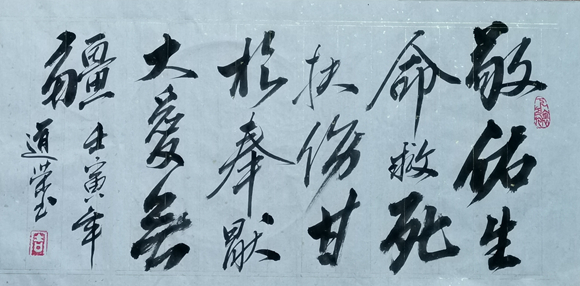 敬佑生
命救死
扶傷甘
於奉献
大愛無
疆
壬寅年
道荣书